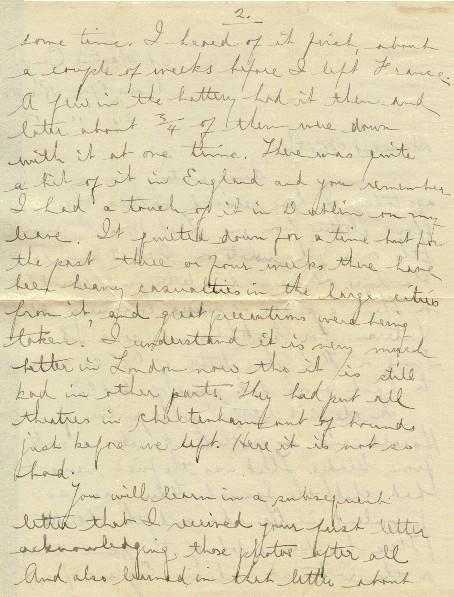 2.
some time. I heard of it first, about
a couple of weeks before I left France.
A few in the battery had it then and
later about 3/4 of them were down
with it at one time. There was quite
a bit of it in England and you remember
I had a touch of it in Dublin on my
leave. It quieted down for a time but for
the past three or four weeks there have
been heavy casualties in the large cities
from it and great precautions were being
taken. I understand it is very much
better in London now tho it is still
bad in other parts. They had put all
theatres in Cheltenham out of bounds
just before we left. Here it is not so
bad.
You will learn in a subsequent
letter that I received your first letter
acknowledging those photos after all
And also learned in that letter about